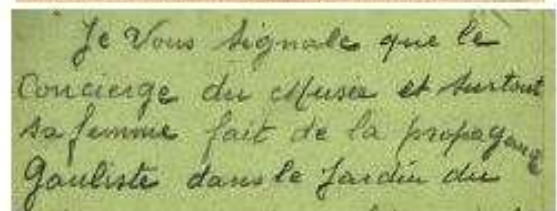 Je Vous Signale que le
Concierge du Musée et surtout
sa femme fait de la propagande
Gauliste dans le Jardin du